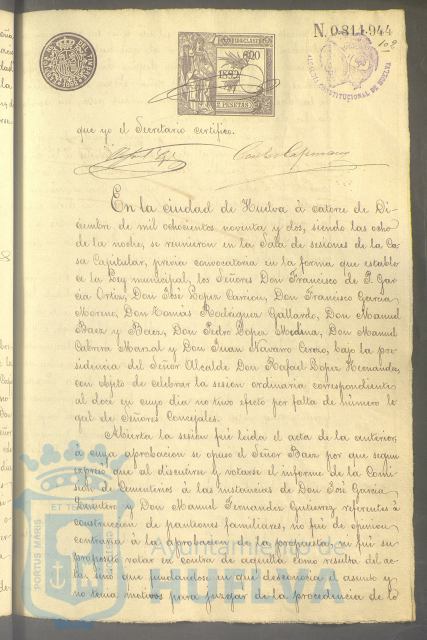 N. 0.811.944
102
ALCALDÍA CONSTITUCIONAL DE HUELVA
1892
2 PESETAS
que yo el Secretario certifico.
En la ciudad de Huelva á catorce de Di-
ciembre de mil ochocientos noventa y dos, siendo las ocho
de la noche, se reunieron en la Sala de sesiones de la Ca-
sa Capitular, previa convocatoria en la forma que estable-
ce la Ley municipal, los Señores Don Francisco de P. Gar-
cia Ortiz, Don José Lopez Carrion, Don Francisco Garcia
Moreno, Don Tomás Rodriguez Gallardo, Don Manuel
Baez y Baez, Don Pedro Lopez Medina, Don Manuel
Cabrera Marzal y Don Juan Navarro Cerezo, bajo la pre-
sidencia del Señor Alcalde Don Rafael Lopez Hernandez,
con objeto de celebrar la sesion ordinaria correspondiente
al doce en cuyo dia no tuvo efecto por falta de número le-
gal de Señores Concejales.
Abierta la sesion fué leida el acta de la anterior,
á cuya aprobacion se opuso el Señor Baez por que segun
expresó que al discutirse y votarse el informe de la Comi-
sion de Cementerios á las instancias de Don José Garcia
y Don Manuel Fernandez Gutierrez, referentes á
construccion de panteones familiares, no fué de opinion
contraria á la aprobacion de la propuesta, ni fué su
proposito votar en contra de aquella como resulta del ac-
ta, sino que fundandose en que desconocia el asunto y
no tenia motivos para juzgar de la procedencia de lo
PORTUS MARIS
ET TE
Ayuntamiento de
HUELVA